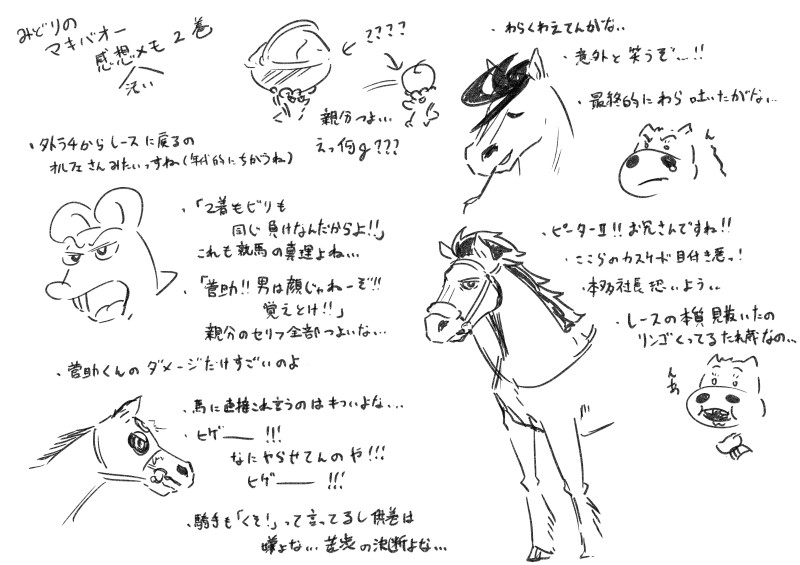 みどりの
マキバオー
感想メモ 2巻
汚い
????
親分つよい…
えっ何g???
・タトラ4からレースに戻るの
オルフェさんみたいっすね(年代的にちがうね)
・「2着もビリも
同じ負けなんだからよ!!」
これも競馬の真理よね…
・「菅助!!男は顔じゃねーぞ!!
覚えとけ!!」
親分のセリフ全部つよいな…
・菅助くんのダメージだけすごいのよ
・馬に直接これ言うのはキツいよな…
・ヒゲ──!!!
なにやらせてんのや!!!
ヒゲ──!!!
・騎手も「くそ!」って言ってるし供養は
嫌よな…苦渋の決断よな…
・わらくわえてんがな…
・意外と笑うぞ…!!
・最終的にわら吐いたがな…
ん
・ピーターⅡ!!お兄さんですね!!
・ここらのカスケード目付き悪っ!
・本多社長恐いよぅ…
・レースの本質見抜いたの
リンゴくってるたれ蔵なの…
んあ